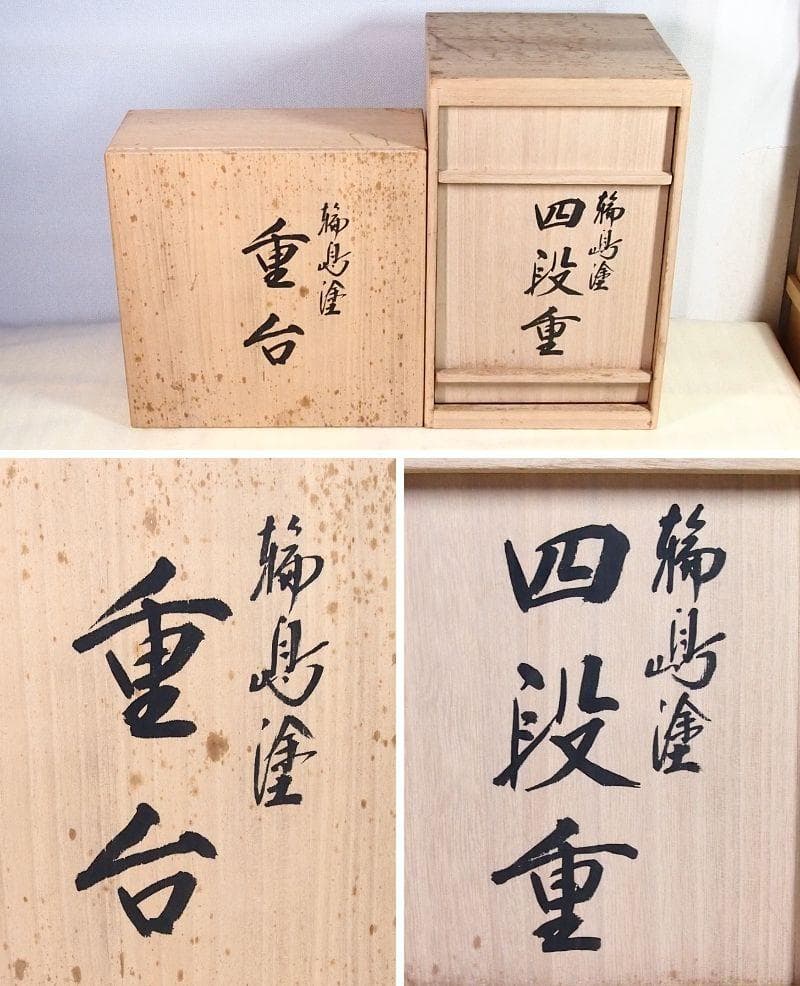 輪島塗
重台
輪嶋塗
四段重
輪島塗
重台
輪嶋塗
四段重